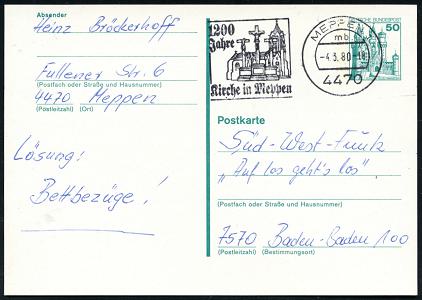 Absender
Heinz Bröckerhoff
Fullener Str. 6
(Postfach oder Straße und Hausnummer)
4470 Meppen
(Postleitzahl) (Ort)
Lösung:
Bettbezüge!
1200
Jahre
Kirche in Meppen
MEPPEN 1
mb
-4.3.80-18
4470
DEUTSCHE BUNDESPOST
50
Postkarte
Süd-West-Funk
„Auf los geht's los"
(Postfach oder Straße und Hausnummer)
7570 Baden-Baden 100
(Postleitzahl) (Bestimmungsort)